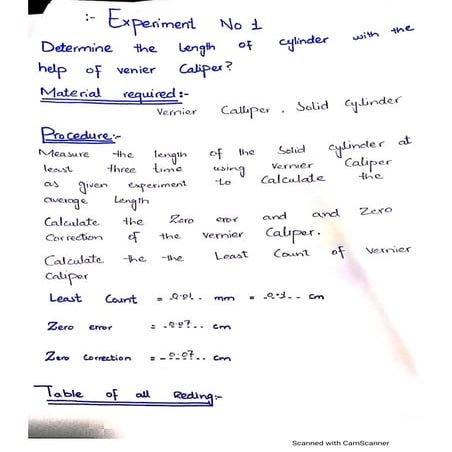 :- Experiment No 1
Determine the length of cylinder with the
help of venier Caliper?
Material required:-
Vernier Calliper . Solid Cylinder
Procedure:-
Measure the length of the Solid cylinder at
least three time using vernier Caliper
as given experiment to Calculate the
average Length
Calculate the Zero eror and and Zero
Correction of the vernier Caliper.
Calculate the the Least Count of vernier
Caliper
Least Count = mm = cm
Zero error = cm
Zero correction = cm
Table of all Reding:-
Scanned with CamScanner